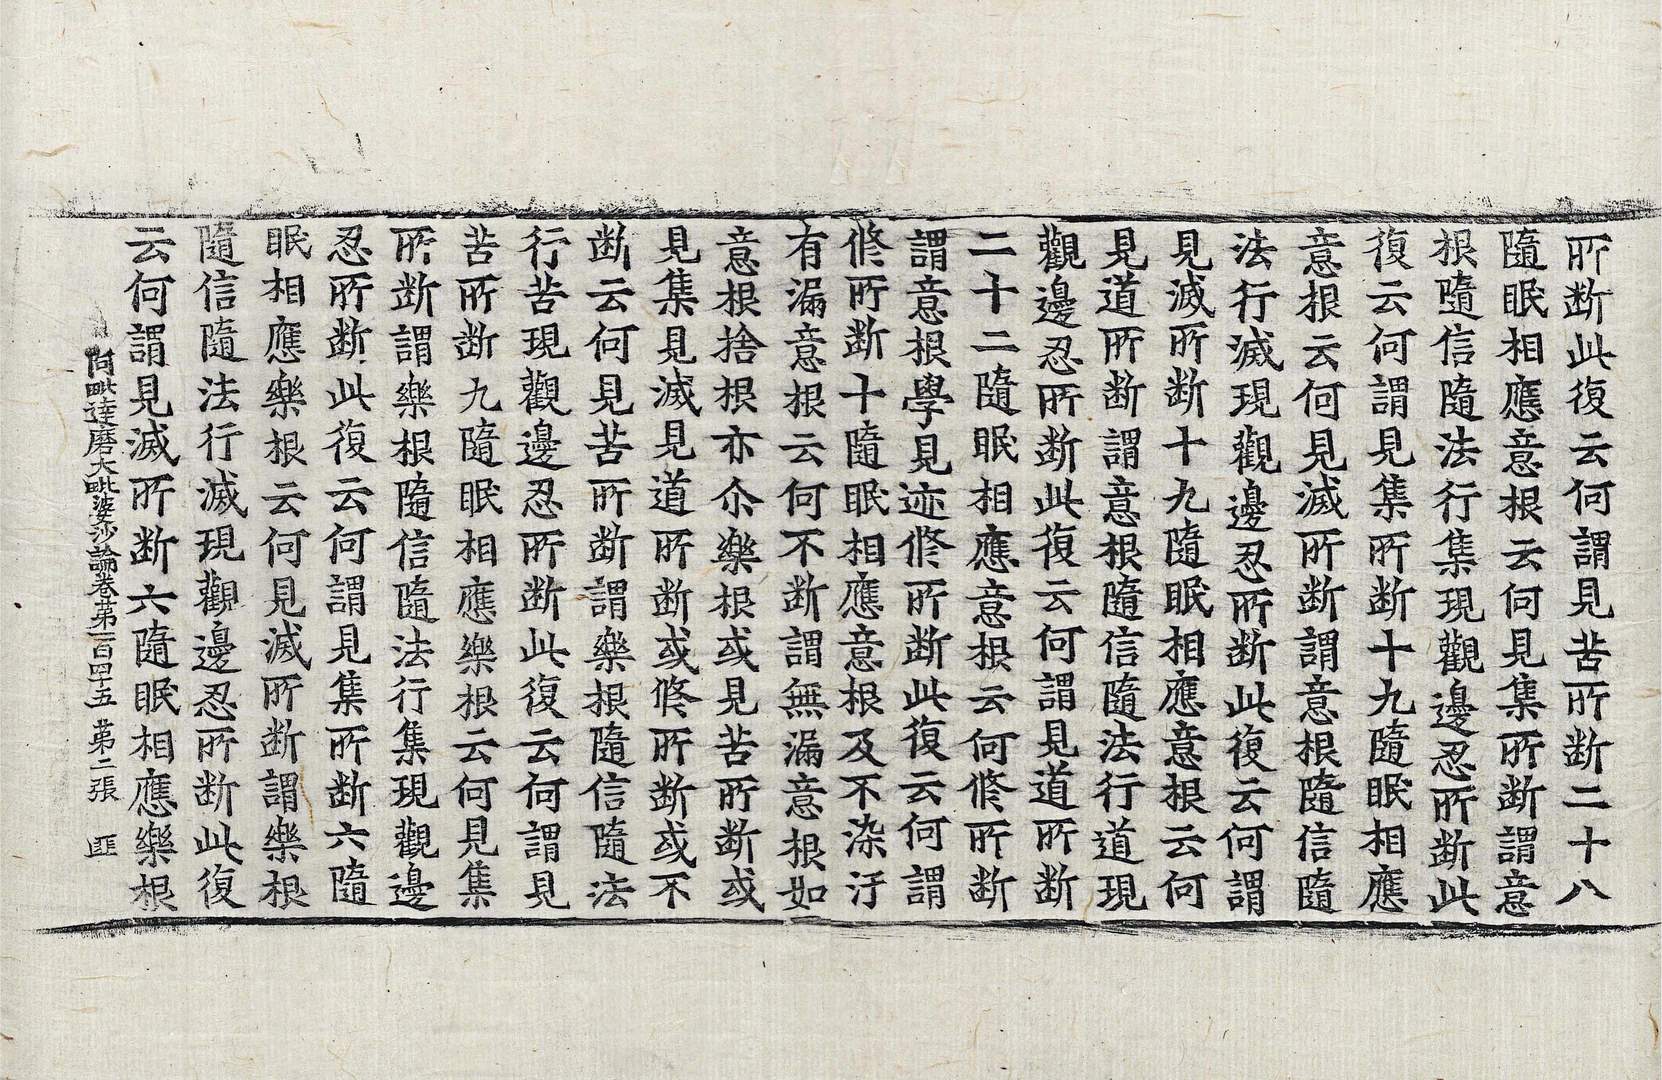 所断此復云何謂見苦所断二十八
隨眠相應意根云何見集所断謂意
根隨信隨法行集現觀邊忍所断此
復云何謂見集所断十九隨眠相應
意根云何見滅所断謂意根隨信隨
法行滅現觀邊忍所断此復云何謂
見滅所断十九隨眠相應意根云何
見道所断謂意根隨信隨法行道現
觀邊忍所断此復云何謂見道所断
二十二隨眠相應意根云何修所断
謂意根學見迹修所断此復云何謂
修所断十隨眠相應意根及不染汙
有漏意根云何不断謂無漏意根如
意根捨根亦尒樂根或見苦所断或
見集見滅見道所断或修所断或不
断云何見苦所断謂樂根隨信隨法
行苦現觀邊忍所断此復云何謂見
苦所断九隨眠相應樂根云何見集
所断謂樂根隨信隨法行集現觀邊
忍所断此復云何謂見集所断六隨
眠相應樂根云何見滅所断謂樂根
隨信隨法行滅現觀邊忍所断此復
云何謂見滅所断六隨眠相應樂根
阿毗達磨大毗婆沙論卷第一百四十五 第二張 匪